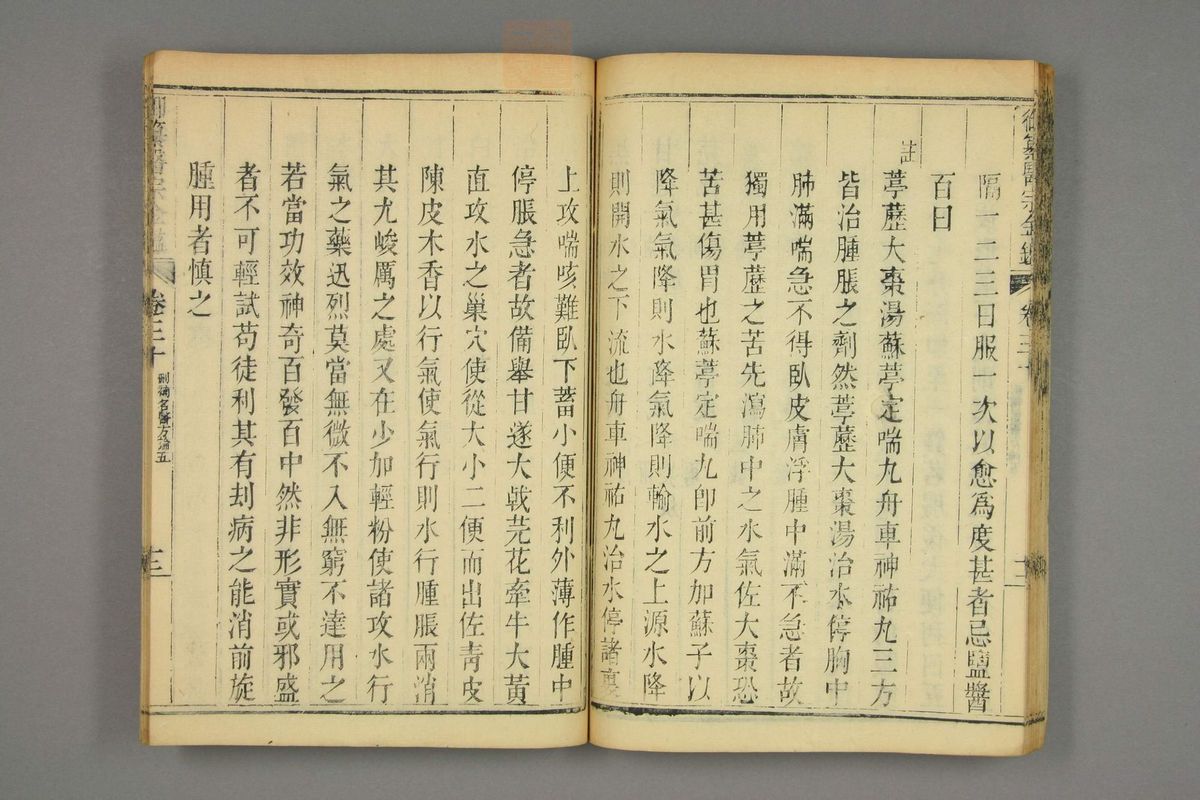 隔一二三日服一次以愈爲度甚者忌鹽醬
百日
註
葶藶大棗湯蘇葶定喘丸舟車神祐丸三方
皆治腫脹之劑然葶藶大棗湯治水停胸中
肺滿喘急不得臥皮膚浮腫中滿不急者故
獨用葶藶之苦先瀉肺中之水氣佐大棗恐
苦甚傷胃也蘇葶定喘丸卽前方加蘇子以
降氣氣降則水降氣降則輸水之上源水降
則開水之下流也舟車神祐丸治水停諸裏
上攻喘咳難臥下蓄小便不利外薄作腫中
停脹急者故備舉甘遂大戟芫花牽牛大黃
直攻水之巢穴使從大小二便而出佐靑皮
陳皮木香以行氣使氣行則水行腫脹兩消
其尤峻厲之處又在少加輕粉使諸攻水行
氣之藥迅烈莫當無微不入無窮不達用之
若當功效神奇百發百中然非形實或邪盛
者不可輕試苟徒利其有刦病之能消前旋
腫用者愼之
御纂醫宗金鑑
卷三十
刪補名醫方論五